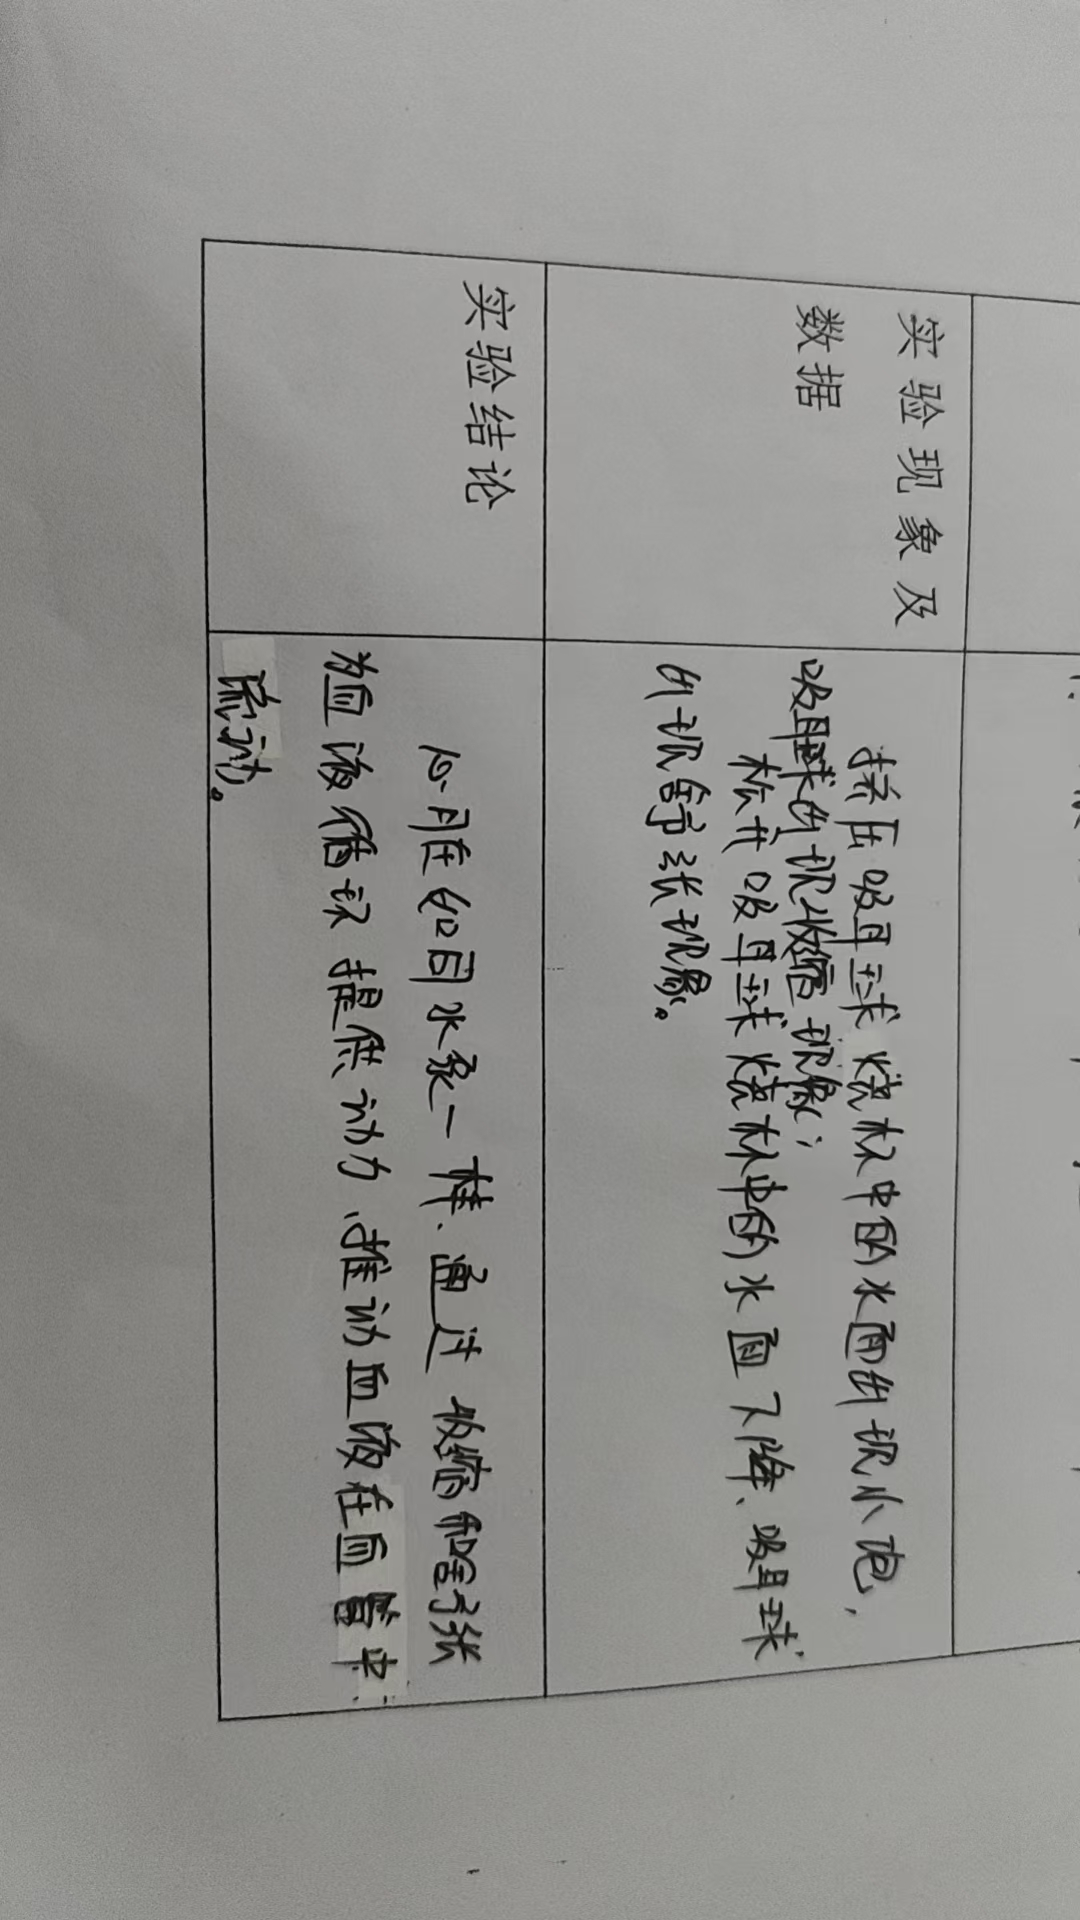 实验现象及
数据
挤压吸耳球烧杯中的水面出现小泡,
吸耳球出现收缩现象;
松开吸耳球烧杯中的水面下降、吸耳球
出现舒张现象。
实验结论
心脏如同水泵一样、通过收缩和舒张
为血液循环提供动力、推动血液在血管中
流动。